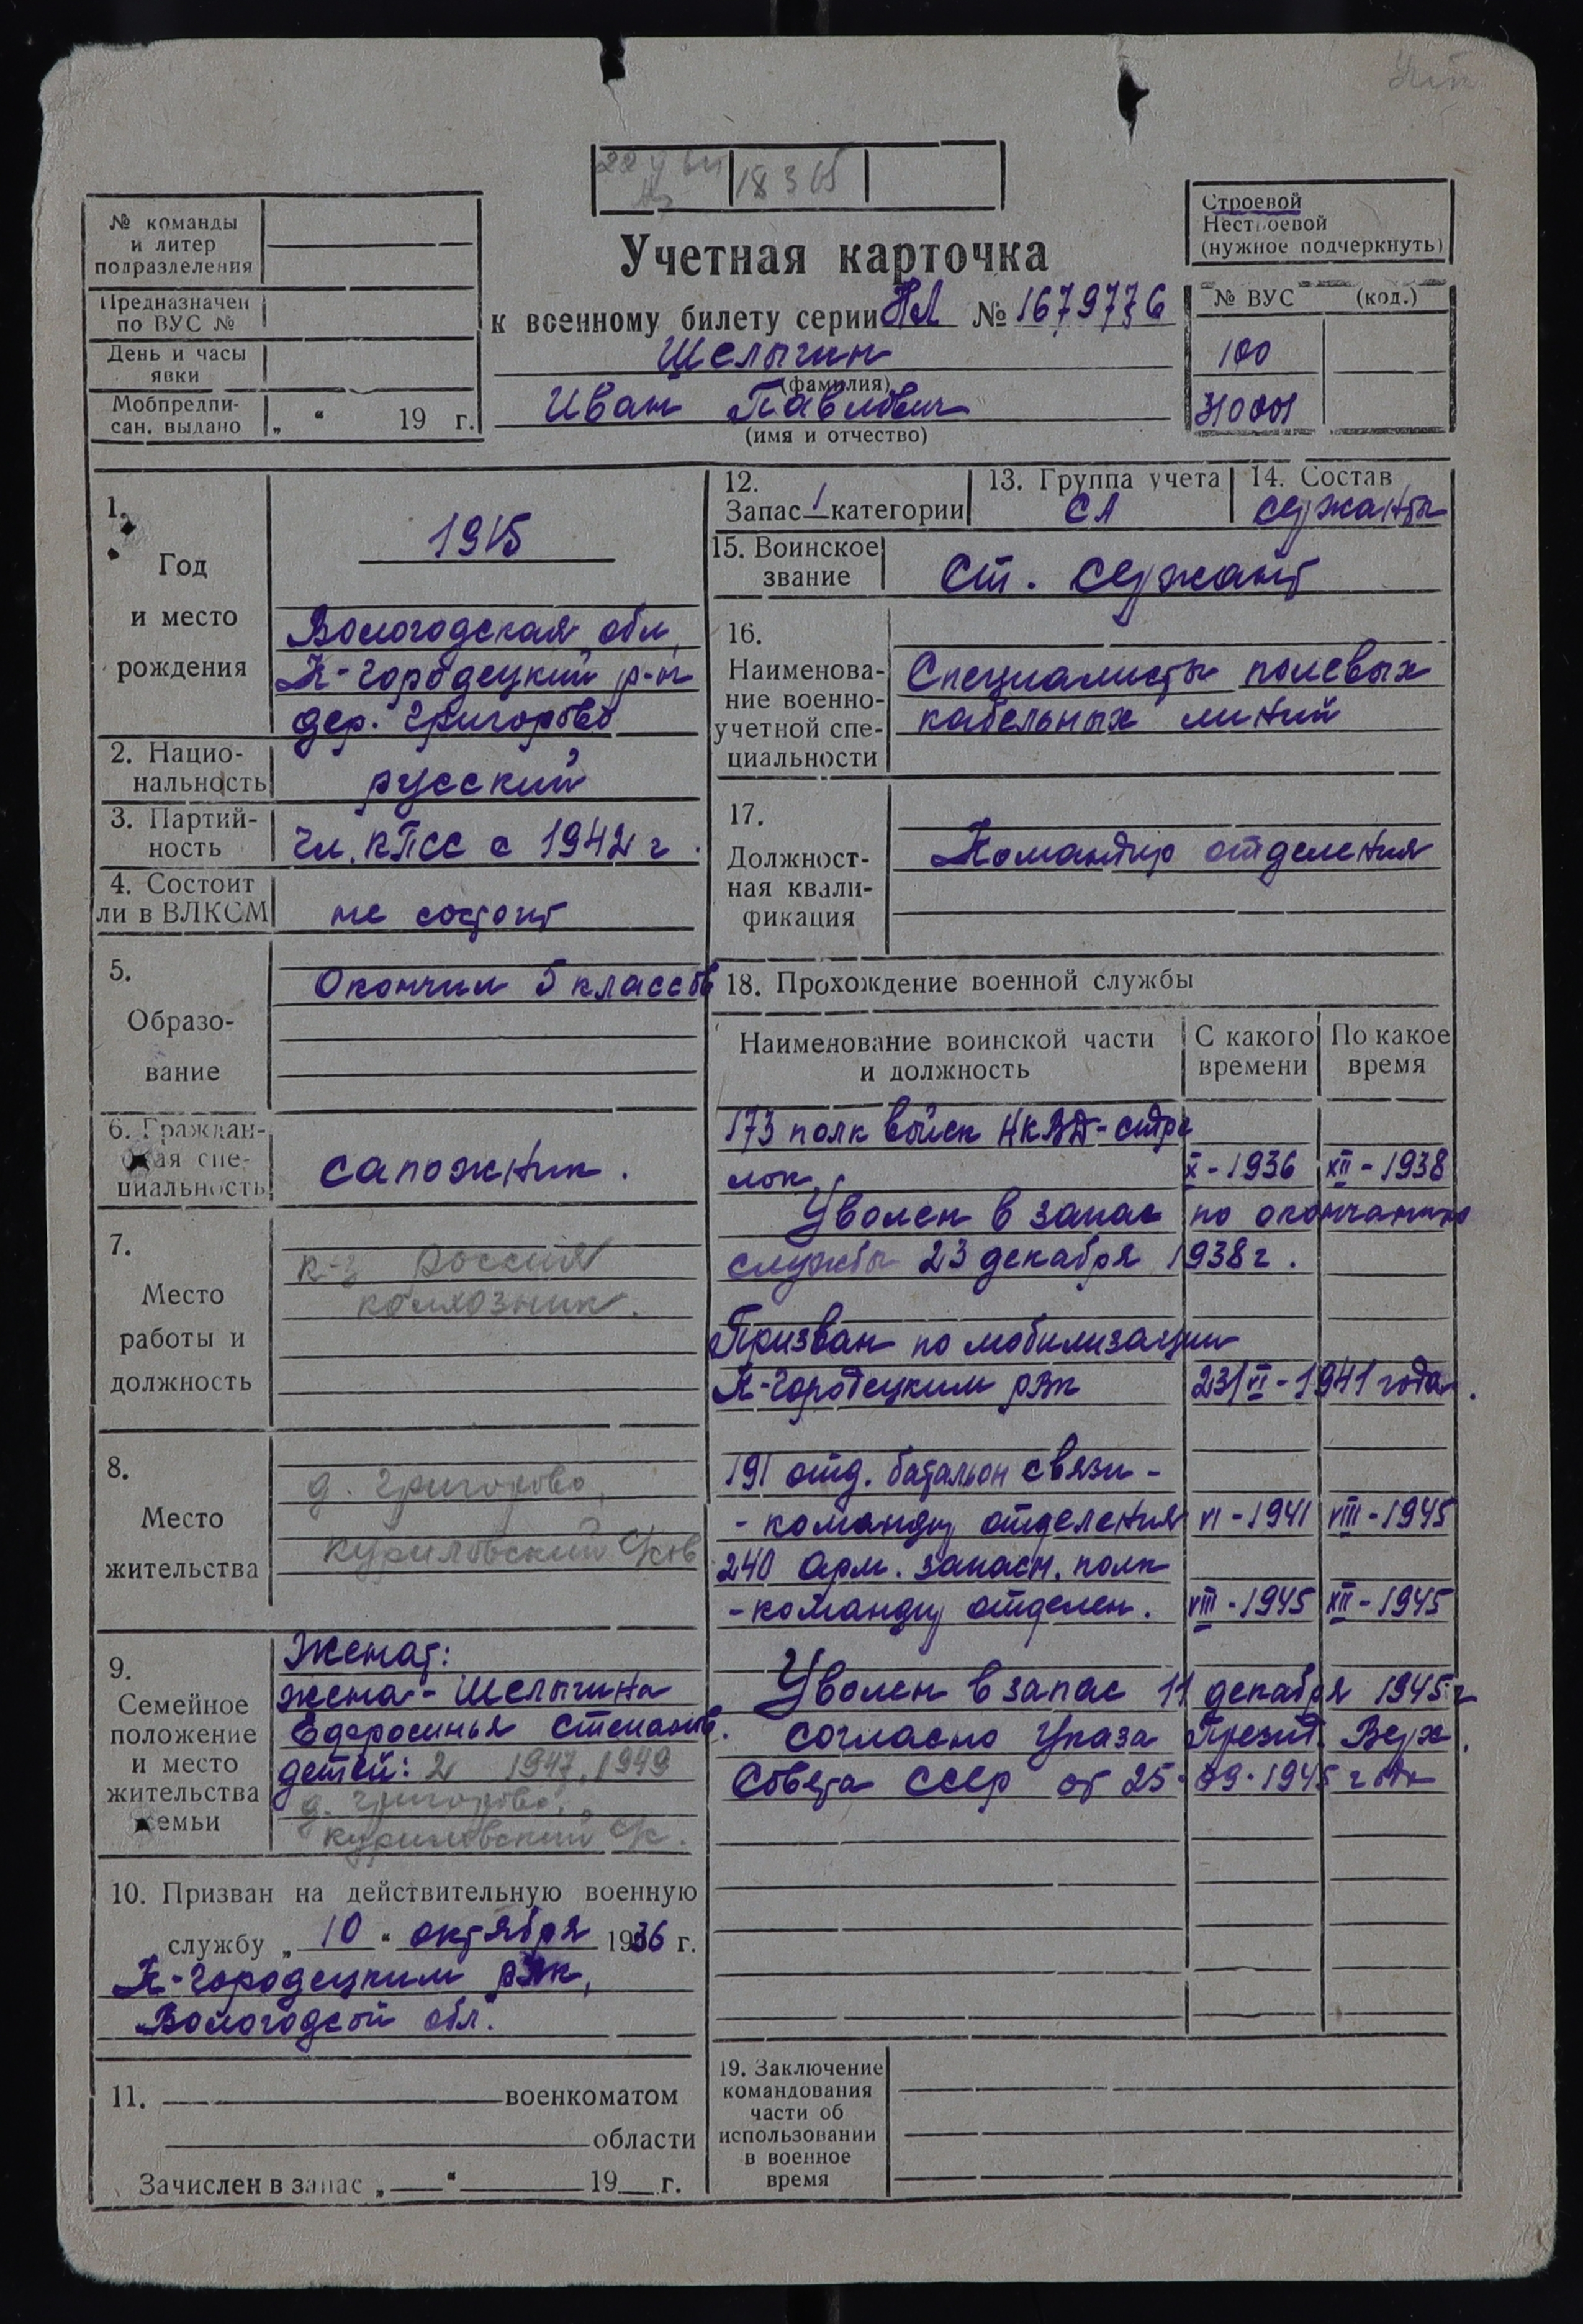 18 3 65
№ команды
и литер
подразделения
Предназначен
по ВУС №
День и часы
явки
Мобпредпи-
сан. выдано „ “ 19 г.
Учетная карточка
к военному билету серии НЛ № 1679776
Шелыгин
(фамилия)
Иван Павлович
(имя и отчество)
Строевой
Нестроевой
(нужное подчеркнуть)
№ ВУС (код.)
100
310001
1.
Год
и место
рождения
1915
Вологодская обл.
К-Городецкий р-н
дер. Григорово
2. Нацио-
нальность
русский
3. Партий-
ность
чл. КПСС с 1942 г.
4. Состоит
ли в ВЛКСМ
не состоит
5.
Образо-
вание
Окончил 5 классов
6. Граждан-
ская спе-
циальность
сапожник.
7.
Место
работы и
должность
к-з Россия
колхозник.
8.
Место
жительства
д. Григорово,
Куриловский
9.
Семейное
положение
и место
жительства
семьи
Женат:
жена - Шелыгина
Ефросинья Степанов.
детей: 2 1947, 1949
д. Григорово,
Куриловский с/с.
10. Призван на действительную военную
службу „ 10 “ октября 1936 г.
К-Городецким РВК,
Вологодсой обл.
11. военкоматом
области
Зачислен в запас „ “ 19 г.
12.
Запас 1 категории
13. Группа учета
СА
14. Состав
сержанты
15. Воинское
звание
Ст. сержант
16.
Наименова-
ние военно-
учетной спе-
циальности
Специалисты полевых
кабельных линий
17.
Должност-
ная квали-
фикация
Командир отделения
18. Прохождение военной службы
Наименование воинской части
и должность
С какого
времени
По какое
время
173 полк войск НКВД - стре
лок X - 1936 XII - 1938
Уволен в запас по окончанию
службы 23 декабря 1938 г.
Призван по мобилизации
К-Городецким РВК 23/VI - 1941 года.
191 отд. батальон связи -
- командир отделения VI - 1941 VIII - 1945
240 арм. запасн. полк
- командир отделен. VIII - 1945 XII - 1945
Уволен в запас 11 декабря 1945 г
согласно Указа Презид. Верх.
Совета СССР от 25.09.1945 года
19. Заключение
командования
части об
использовании
в военное
время